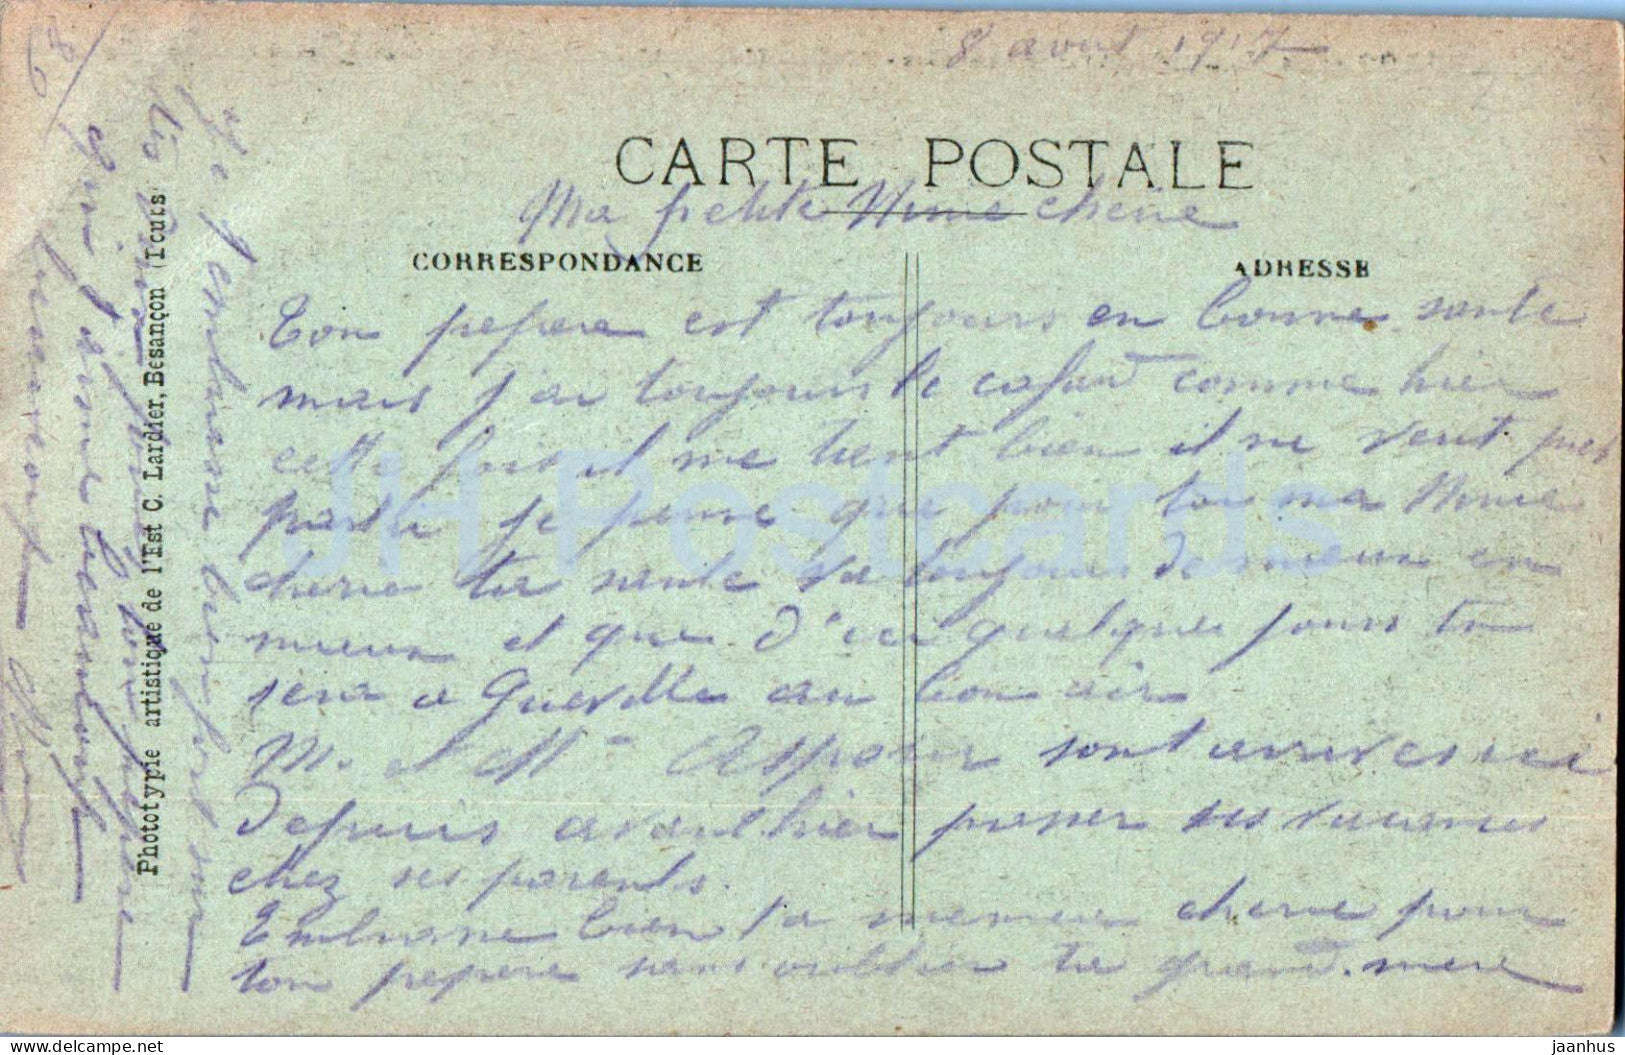 8 aout 1917
CARTE POSTALE
Ma petite Mimie cherie
CORRESPONDANCE
ADRESSE
Ton pepere est toujours en bonne sante
mais j'ai toujours le cafard comme hier
cette fois il me tient bien il ne veut pas
partir je pense que pour toi ma Mimie
cherie ta sante va toujours de mieux en
mieux et que d'ici quelques jours tu
sera a Guerville au bon air
M. et Mme sont arrives ici
depuis avant hier passer ses vacances
chez ses parents.
Embrasse bien ta memere cherie pour
ton pepere sans oublier ta grand. mere
Je t'embrasse bien fort sur
pour ton pepere
qui t'aime beaucoup
beaucoup
89
Phototypie artistique de l'Est C. Lardier, Besançon (Doubs)
JH Postcards
jaanhus www.delcampe.net